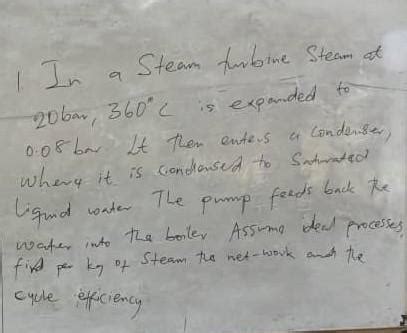 1. In a Steam turbine Steam at
20bar, 360°C is expanded to
0.08 bar It then enters a Condenser,
where it is Condensed to Saturated
liquid water The pump feeds back the
water into the boiler Assume ideal processes,
find per kg of Steam the net-work and the
cycle efficiency